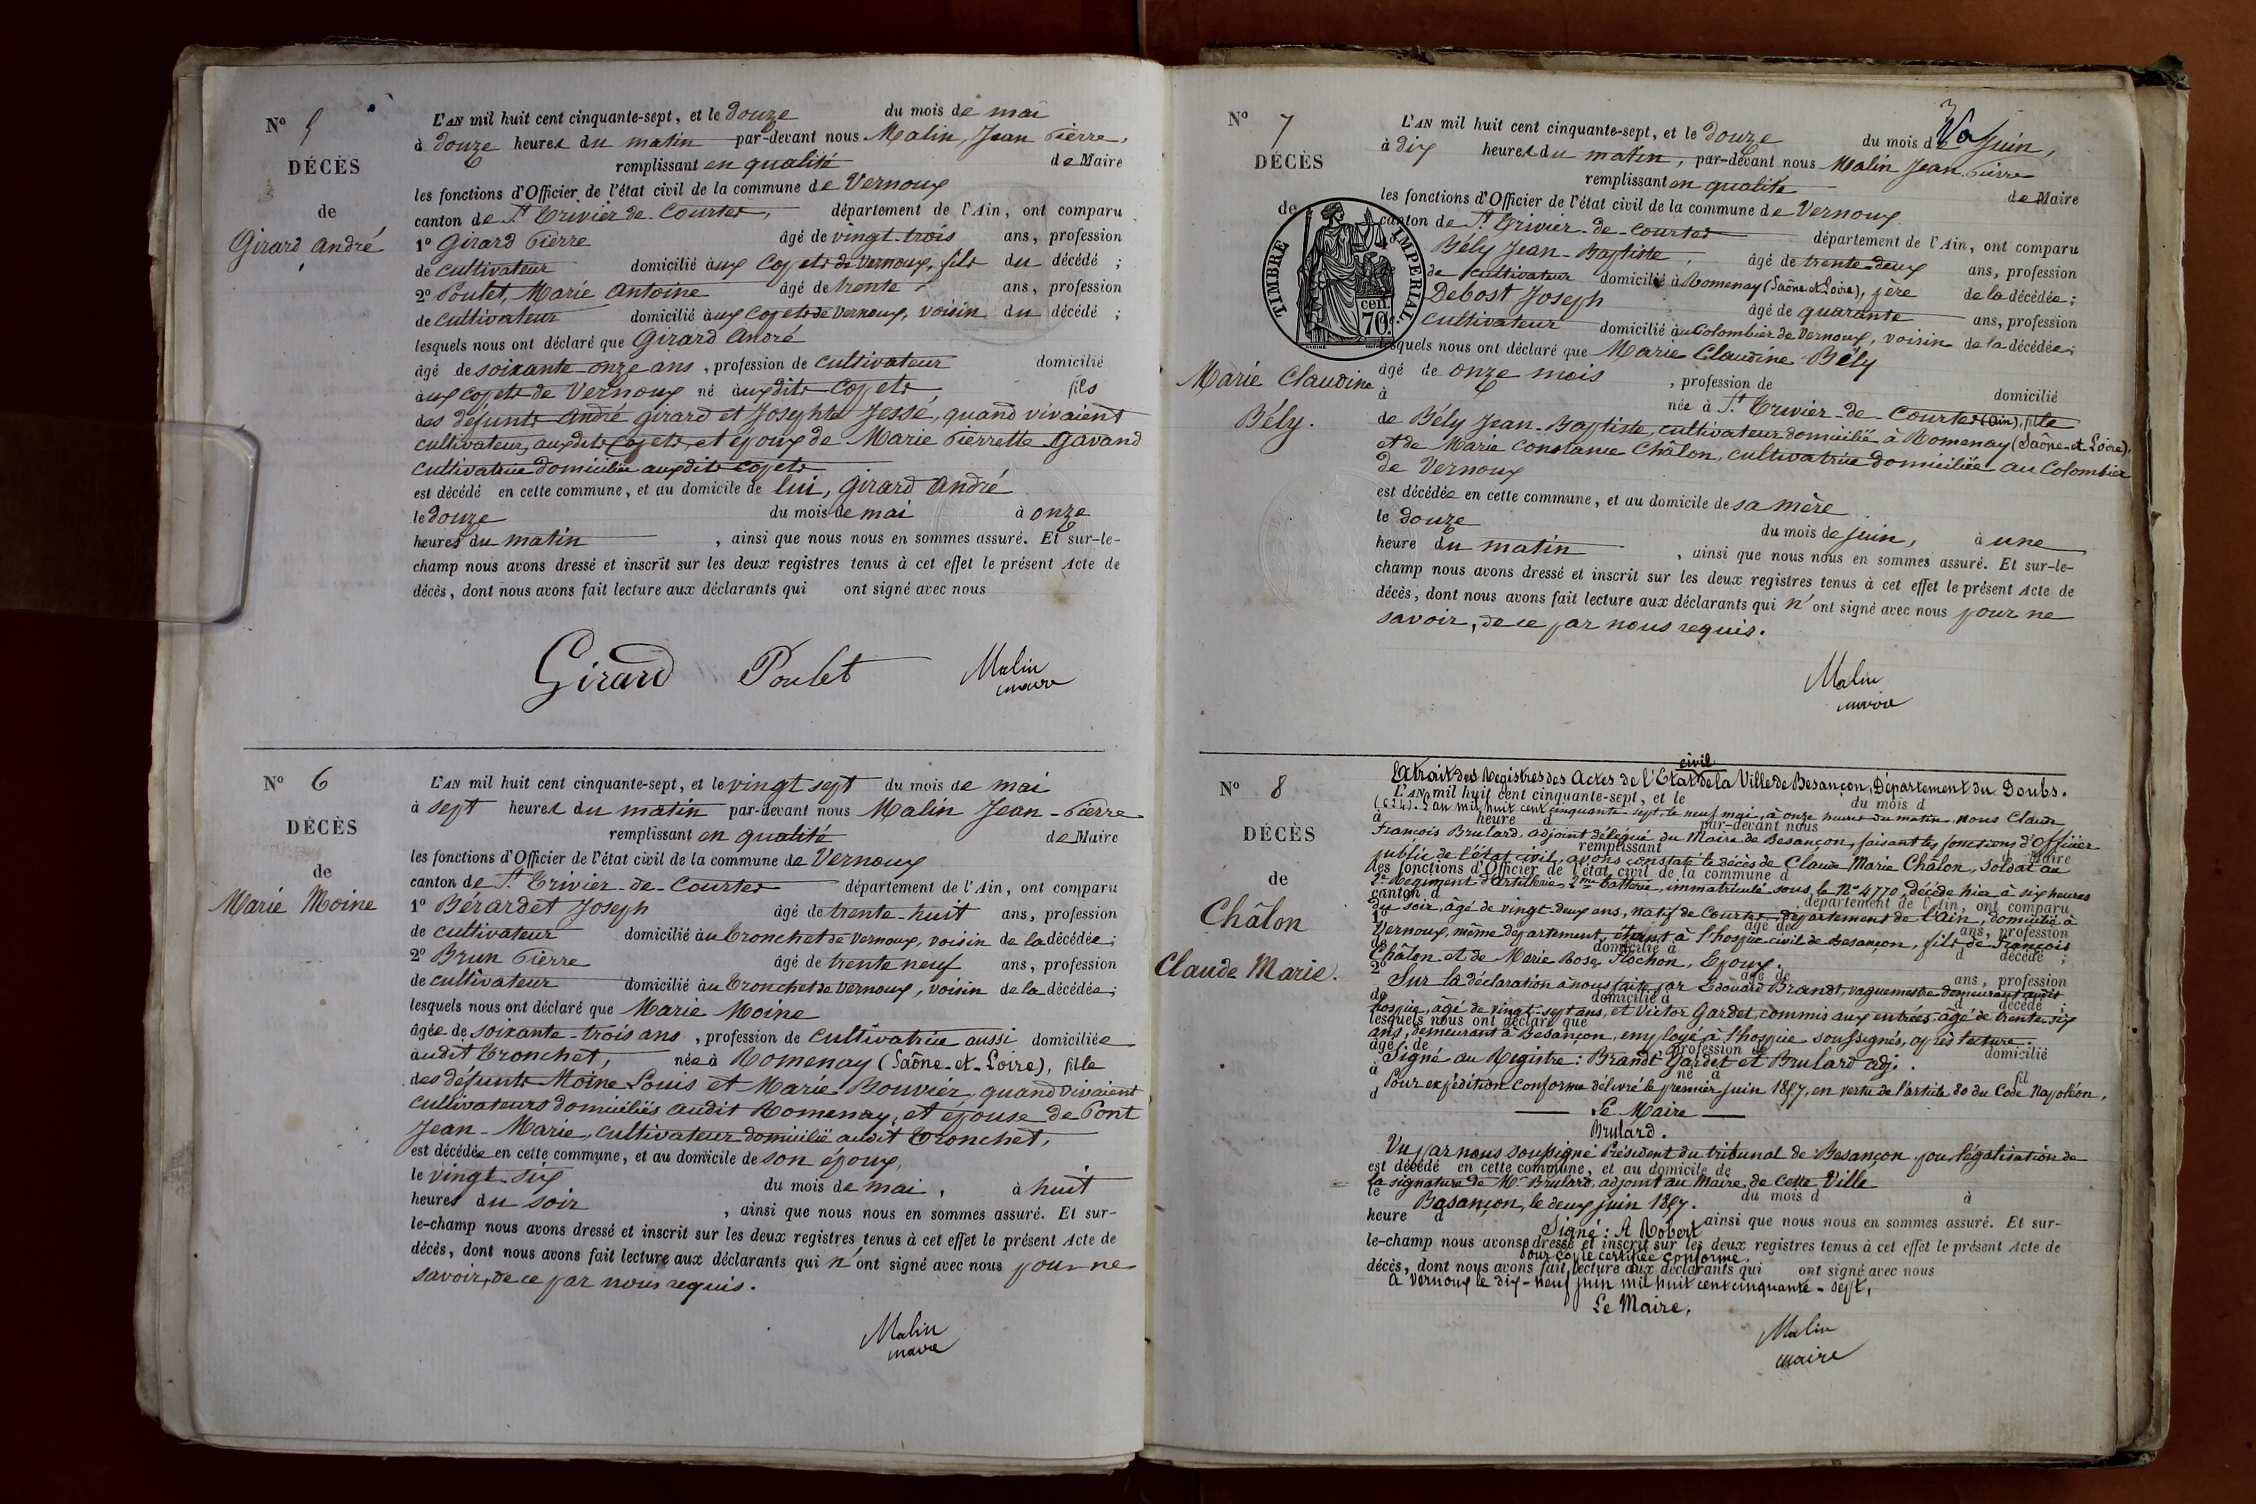 Nº 5
DÉCÈS
de
Girard André
L'AN mil huit cent cinquante-sept, et le douze du mois de mai
à douze heures du matin par-devant nous Malin, Jean Pierre,
remplissant en qualité de Maire
les fonctions d'Officier de l'état civil de la commune de Vernoux
canton de St Trivier-de-Courtes, département de l'Ain, ont comparu
1º Girard Pierre âgé de vingt-trois ans, profession
de cultivateur domicilié aux Cojets de Vernoux, fils du décédé ;
2º Poulet, Marie Antoine âgé de trente ans, profession
de cultivateur domicilié aux Cojets de Vernoux, voisin du décédé ;
lesquels nous ont déclaré que Girard André
âgé de soixante-onze ans, profession de cultivateur domicilié
aux Cojets de Vernoux né auxdits Cojets fils
des défunts André Girard et Josephte Jessé, quand vivaient
cultivateurs auxdits Cojets, et époux de Marie Pierrette Gavand
cultivatrice domiciliée auxdits Cojets
est décédé en cette commune, et au domicile de lui, Girard André
le douze du mois de mai à onze
heures du matin, ainsi que nous nous en sommes assuré. Et sur-le-
champ nous avons dressé et inscrit sur les deux registres tenus à cet effet le présent Acte de
décès, dont nous avons fait lecture aux déclarants qui ont signé avec nous
Girard Poulet Malin
maire
Nº 6
DÉCÈS
de
Marie Moine
L'AN mil huit cent cinquante-sept, et le vingt sept du mois de mai
à sept heures du matin par-devant nous Malin Jean-Pierre
remplissant en qualité de Maire
les fonctions d'Officier de l'état civil de la commune de Vernoux
canton de St Trivier-de-Courtes département de l'Ain, ont comparu
1º Bérardet Joseph âgé de trente-huit ans, profession
de cultivateur domicilié au Tronchet de Vernoux, voisin de la décédée ;
2º Brun Pierre âgé de trente neuf ans, profession
de cultivateur domicilié au Tronchet de Vernoux, voisin de la décédée ;
lesquels nous ont déclaré que Marie Moine
âgée de soixante-trois ans, profession de cultivatrice aussi domiciliée
audit Tronchet, née à Romenay (Saône-et-Loire), fille
des défunts Moine Louis et Marie Bouvier, quand vivaient
cultivateurs domiciliés audit Romenay, et épouse de Pont
Jean-Marie, cultivateur domicilié audit Tronchet,
est décédée en cette commune, et au domicile de son époux,
le vingt six du mois de mai, à huit
heures du soir, ainsi que nous nous en sommes assuré. Et sur-
le-champ nous avons dressé et inscrit sur les deux registres tenus à cet effet le présent Acte de
décès, dont nous avons fait lecture aux déclarants qui n'ont signé avec nous pour ne
savoir, de ce par nous requis.
Malin
maire
Nº 7
DÉCÈS
de
Marie Claudine
Bély.
TIMBRE IMPÉRIAL
70 cen.
L'AN mil huit cent cinquante-sept, et le douze du mois de Juin,
à dix heures du matin, par-devant nous Malin Jean Pierre
remplissant en qualité de Maire
les fonctions d'Officier de l'état civil de la commune de Vernoux
canton de St Trivier-de-Courtes département de l'Ain, ont comparu
Bély Jean-Baptiste, âgé de trente-deux ans, profession
de cultivateur domicilié à Romenay (Saône et Loire), père de la décédée ;
Debost Joseph âgé de quarante ans, profession
cultivateur domicilié au Colombier de Vernoux, voisin de la décédée ;
lesquels nous ont déclaré que Marie Claudine Bély
âgé de onze mois, profession de domicilié
à née à St Trivier-de-Courtes (Ain), fille
de Bély Jean-Baptiste, cultivateur domicilié à Romenay (Saône-et-Loire),
et de Marie Constance Châlon, cultivatrice domiciliée au Colombier
de Vernoux
est décédée en cette commune, et au domicile de sa mère
le douze du mois de juin, à une
heure du matin, ainsi que nous nous en sommes assuré. Et sur-le-
champ nous avons dressé et inscrit sur les deux registres tenus à cet effet le présent Acte de
décès, dont nous avons fait lecture aux déclarants qui n'ont signé avec nous pour ne
savoir, de ce par nous requis.
Malin
maire
Nº 8
DÉCÈS
de
Châlon
Claude Marie.
Extrait des Registres des Actes de l'Etat civil de la Ville de Besançon, Département du Doubs.
L'AN mil huit cent cinquante-sept, et le du mois d
L'an mil huit cent cinquante-sept, le neuf mai, à onze heures du matin, nous Claude
à heure d par-devant nous
François Brulard, adjoint délégué du Maire de Besançon, faisant les fonctions d'Officier
remplissant Maire
public de l'état civil, avons constaté le décès de Claude Marie Châlon, soldat au
les fonctions d'Officier de l'état civil de la commune d
2e Régiment d'artillerie, 2me batterie, immatriculé sous le Nº 4770, décédé hier à six heures
canton d département de l'Ain, ont comparu
du soir, âgé de vingt-deux ans, natif de Courtes, département de l'Ain, domicilié à
1º âgé de ans, profession
Vernoux, même département, étant à l'hospice civil de Besançon, fils de François
de domicilié à d décédé ;
Châlon et de Marie Rose Flochon, Epoux.
2º âgé de ans, profession
Sur la déclaration à nous faite par Edouard Brandt, vaguemestre demeurant audit
de domicilié à d décédé
hospice, âgé de vingt-sept ans, et Victor Gardet, commis aux entrées, âgé de trente-six
lesquels nous ont déclaré que
ans, demeurant à Besançon, employé à l'hospice soussignés, après lecture.
âgé de profession de domicilié
Signé au Registre : Brandt Gardet et Brulard adj.
à né à fil
Pour expédition conforme délivré le premier juin 1857, en vertu de l'article 80 du Code Napoléon,
d
Le Maire
Brulard.
Vu par nous soussigné Président du tribunal de Besançon pour légalisation de
est décédé en cette commune, et au domicile de
la signature de Mr Brulard, adjoint au Maire de cette Ville
le du mois d à
Besançon, le deux juin 1857.
heure d ainsi que nous nous en sommes assuré. Et sur-
Signé : A Robert
le-champ nous avons dressé et inscrit sur les deux registres tenus à cet effet le présent Acte de
Pour copie certifiée conforme,
décès, dont nous avons fait lecture aux déclarants qui ont signé avec nous
A Vernoux le dix-neuf juin mil huit cent cinquante-sept,
Le Maire,
Malin
maire